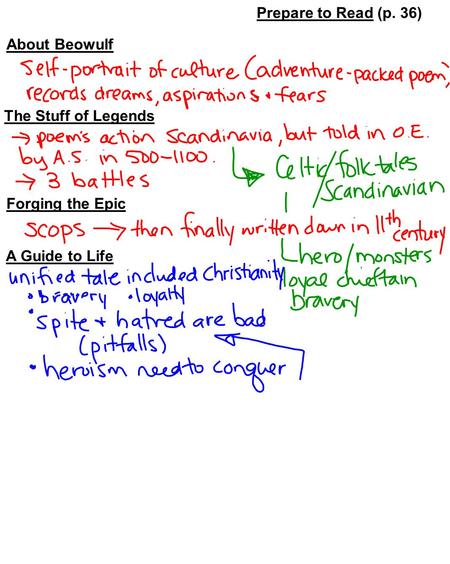 Prepare to Read (p. 36)
About Beowulf
Self-portrait of culture (adventure-packed poem),
records dreams, aspirations + fears
The Stuff of Legends
→ poem's action Scandinavia, but told in O.E.
by A.S. in 500-1100.
→ 3 battles
Celtic/folk tales
/Scandinavian
Forging the Epic
scops → then finally written down in 11th century
hero/monsters
loyal chieftain
bravery
A Guide to Life
unified tale included Christianity
• bravery • loyalty
• spite + hatred are bad
(pitfalls)
• heroism need to conquer